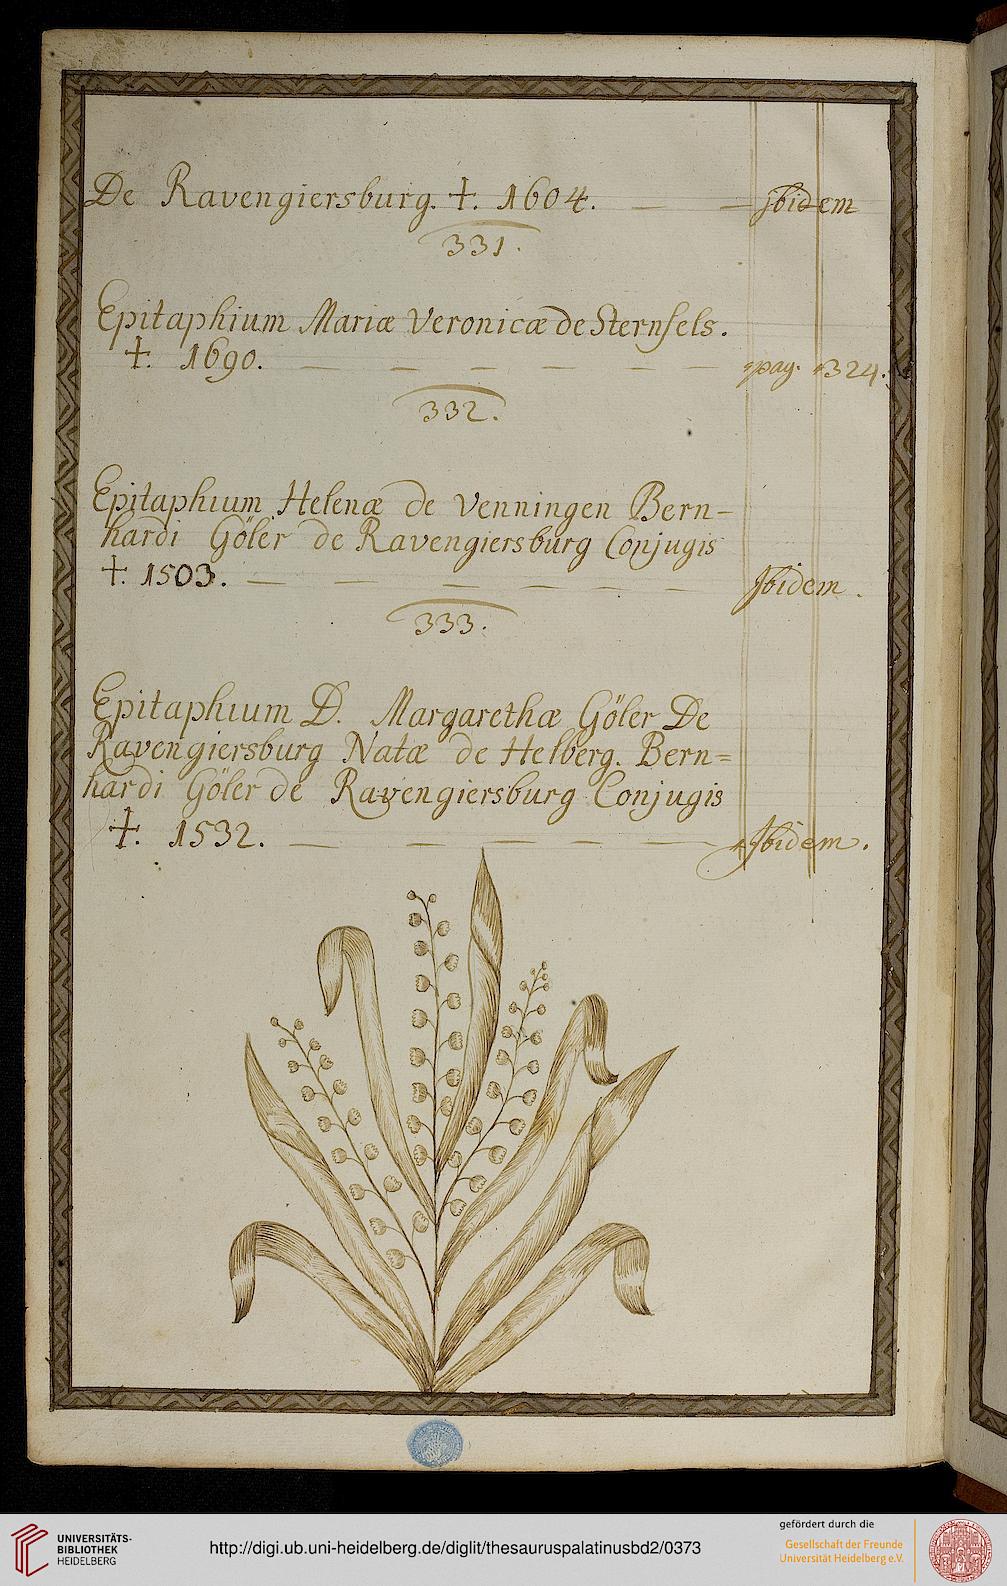 De Ravengiersburg. †. 1604. — — jbidem
331.
Epitaphium Mariæ Veronicæ de Sternfels.
†. 1690. — — — — — — pag. 324.
332.
Epitaphium Helenæ de Venningen Bern-
hardi Göler de Ravengiersburg Conjugis
†. 1503. — — — — — — Jbidem.
333.
Epitaphium D. Margarethæ Göler De
Ravengiersburg Natæ de Helberg. Bern=
hardi Göler de Ravengiersburg Conjugis
†. 1532. — — — — — — Jbidem.
UNIVERSITÄTS-
BIBLIOTHEK
HEIDELBERG
http://digi.ub.uni-heidelberg.de/diglit/thesauruspalatinusbd2/0373
gefördert durch die
Gesellschaft der Freunde
Universität Heidelberg e.V.